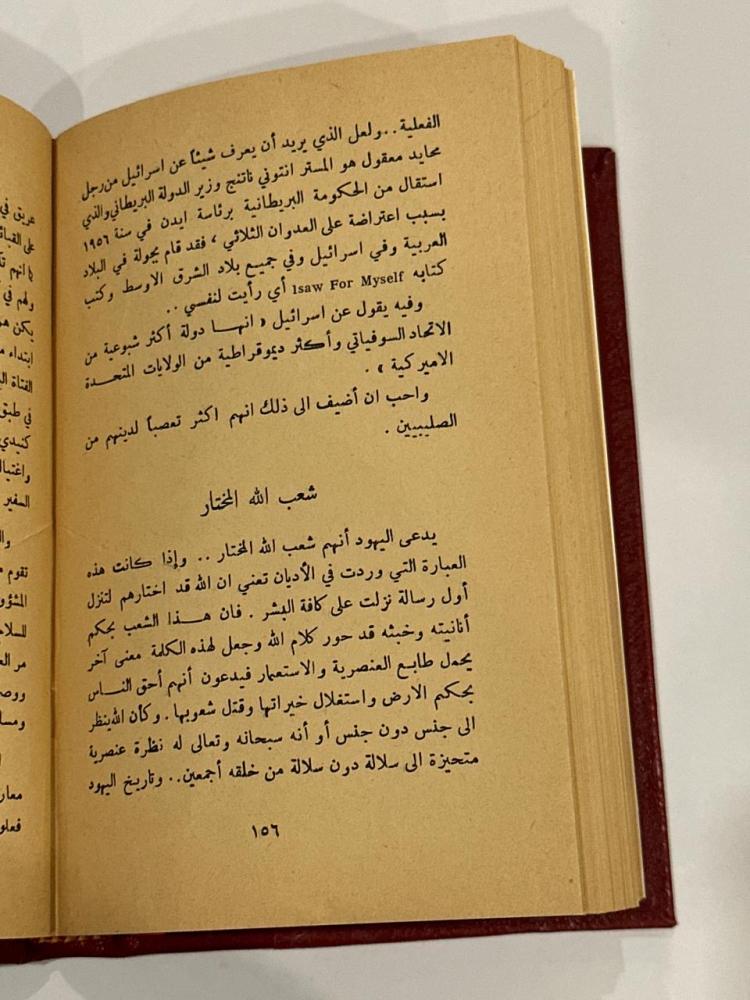 الفعلية..ولعل الذي يريد أن يعرف شيئاً عن اسرائيل من رجل
محايد معقول هو المستر انتوني ناتنج وزير الدولة البريطاني والذي
استقال من الحكومة البريطانية برئاسة ايدن في سنة ١٩٥٦
بسبب اعتراضة على العدوان الثلاثي ، فقد قام بجولة في البلاد
العربية وفي اسرائيل وفي جميع بلاد الشرق الاوسط وكتب
كتابه Isaw For Myself أي رأيت لنفسي ..
وفيه يقول عن اسرائيل « انهـا دولة أكثر شيوعية من
الاتحاد السوفياتي وأكثر ديموقراطية من الولايات المتحـدة
الاميركية » .
واحب ان أضيف الى ذلك انهم اكثر تعصباً لدينهم من
الصليبيين .
شعب الله المختار
يدعى اليهود أنهم شعب الله المختار .. وإذا كانت هذه
العبارة التي وردت في الأديان تعني ان الله قد اختارهم لتنزل
أول رسالة نزلت على كافة البشر . فان هـذا الشعب بحكم
أنانيته وخبثه قد حور كلام الله وجعل لهذه الكلمة معنى آخر
يحمل طابع العنصرية والاستعمار فيدعون أنهم أحق النـاس
بحكم الارض واستغلال خيراتها وقتل شعوبها . وكأن الله ينظر
الى جنس دون جنس أو أنه سبحانه وتعالى له نظرة عنصرية
متحيزة الى سلالة دون سلالة من خلقه أجمعين.. وتاريخ اليهود
١٥٦
عريق في
على القبائ
ولهم في
يكن هن
ابتداء م
الفتاة الي
في طبق
كنيدي
واغتيال
السفير
تقوم
المشؤو
للسلاح
ووصـ
ومسا
معار
فعلو